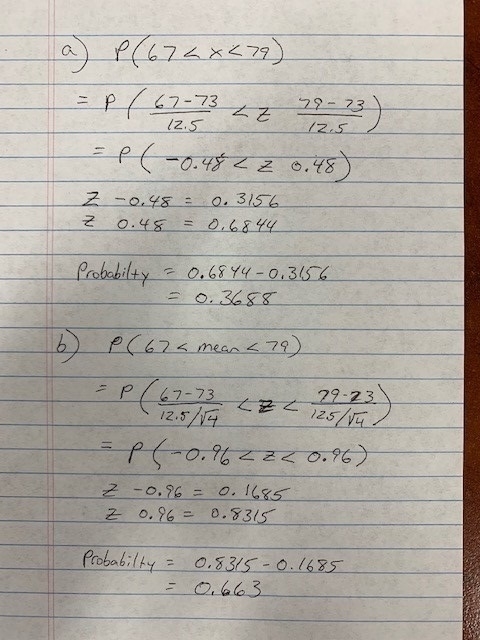 a) P(67 < x < 79)
= P ( 67-73 / 12.5 < z 79-73 / 12.5 )
= P ( -0.48 < z 0.48)
z -0.48 = 0.3156
z 0.48 = 0.6844
Probabilty = 0.6844 - 0.3156
= 0.3688
b) P(67 < mean < 79)
= P ( 67-73 / 12.5/√4 < z < 79-73 / 12.5/√4 )
= P (-0.96 < z < 0.96)
z -0.96 = 0.1685
z 0.96 = 0.8315
Probabilty = 0.8315 - 0.1685
= 0.663